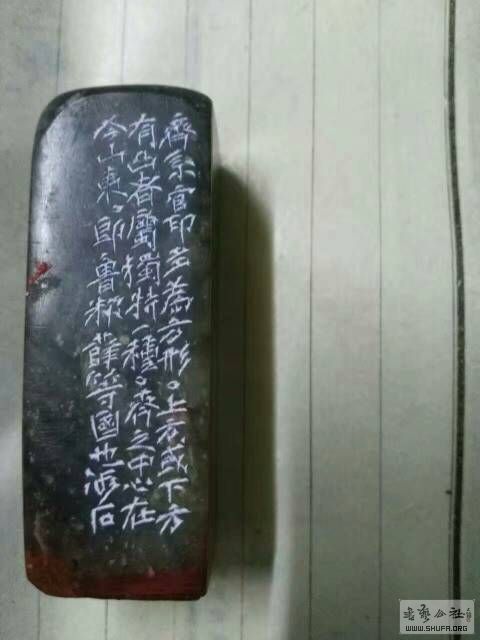 齊系官印多為方形。上方或下方
有凸者屬獨特一種。齊之中心在
今山東、即魯邾薛等國也 石
書藝公社
WWW.SHUFA.ORG